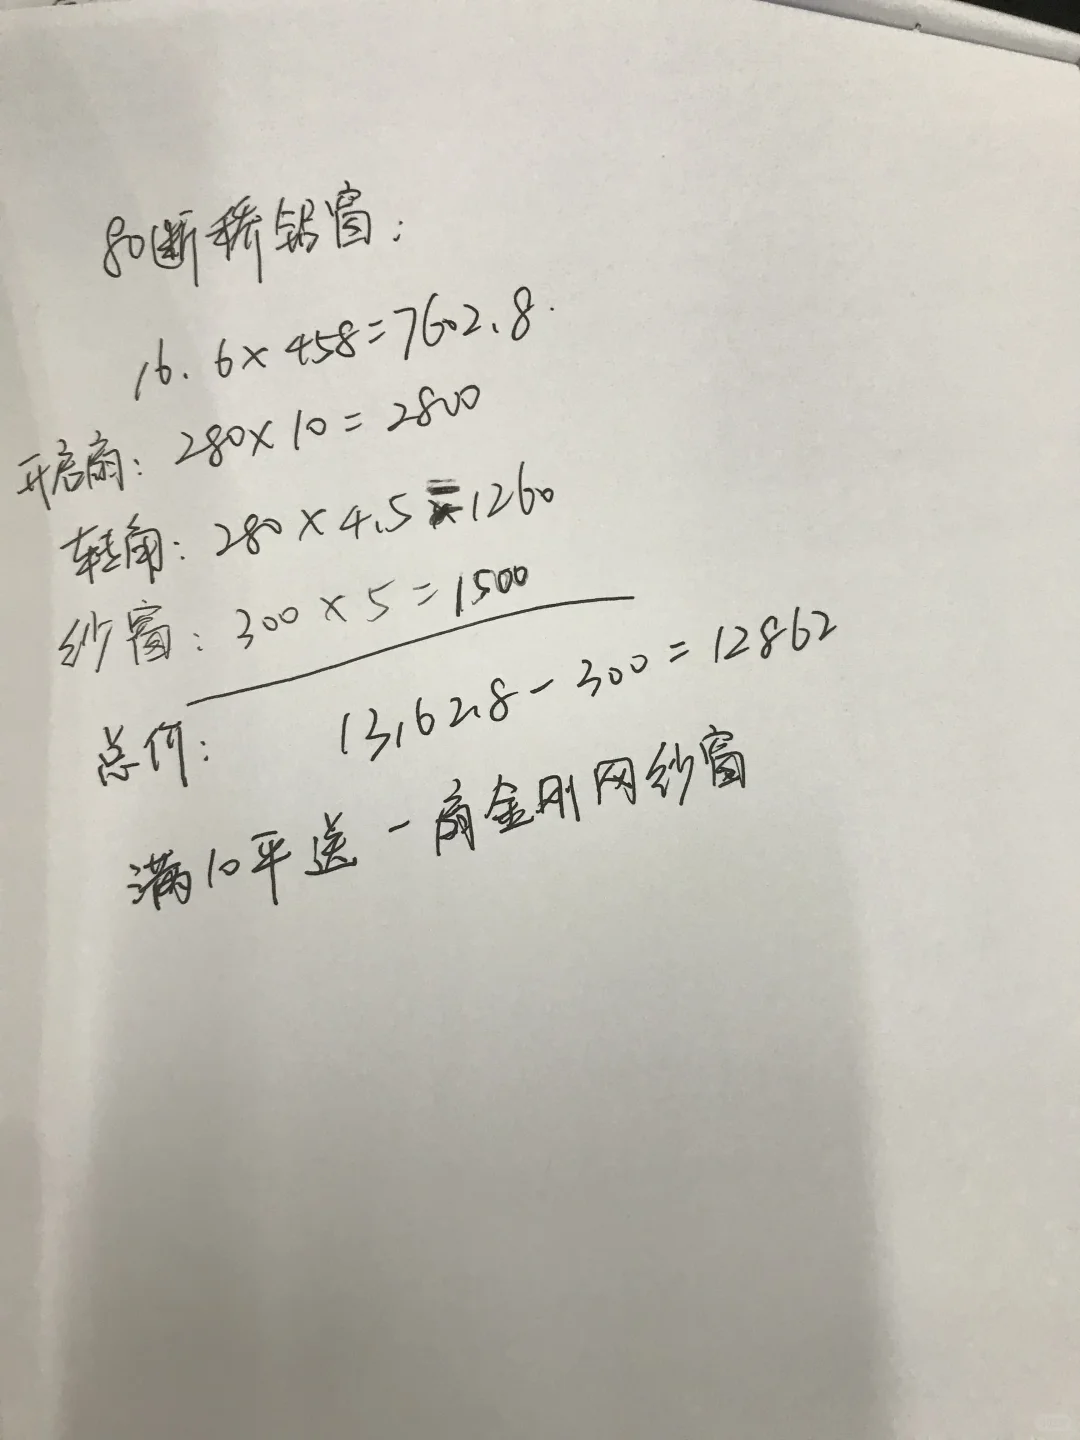 80断桥铝窗:
16.6×458=7602.8.
开启扇: 280×10=2800
转角: 280×4.5=1260
纱窗: 300×5=1500
总价: 13,62.8-300=12862
满10平送一扇金刚网纱窗